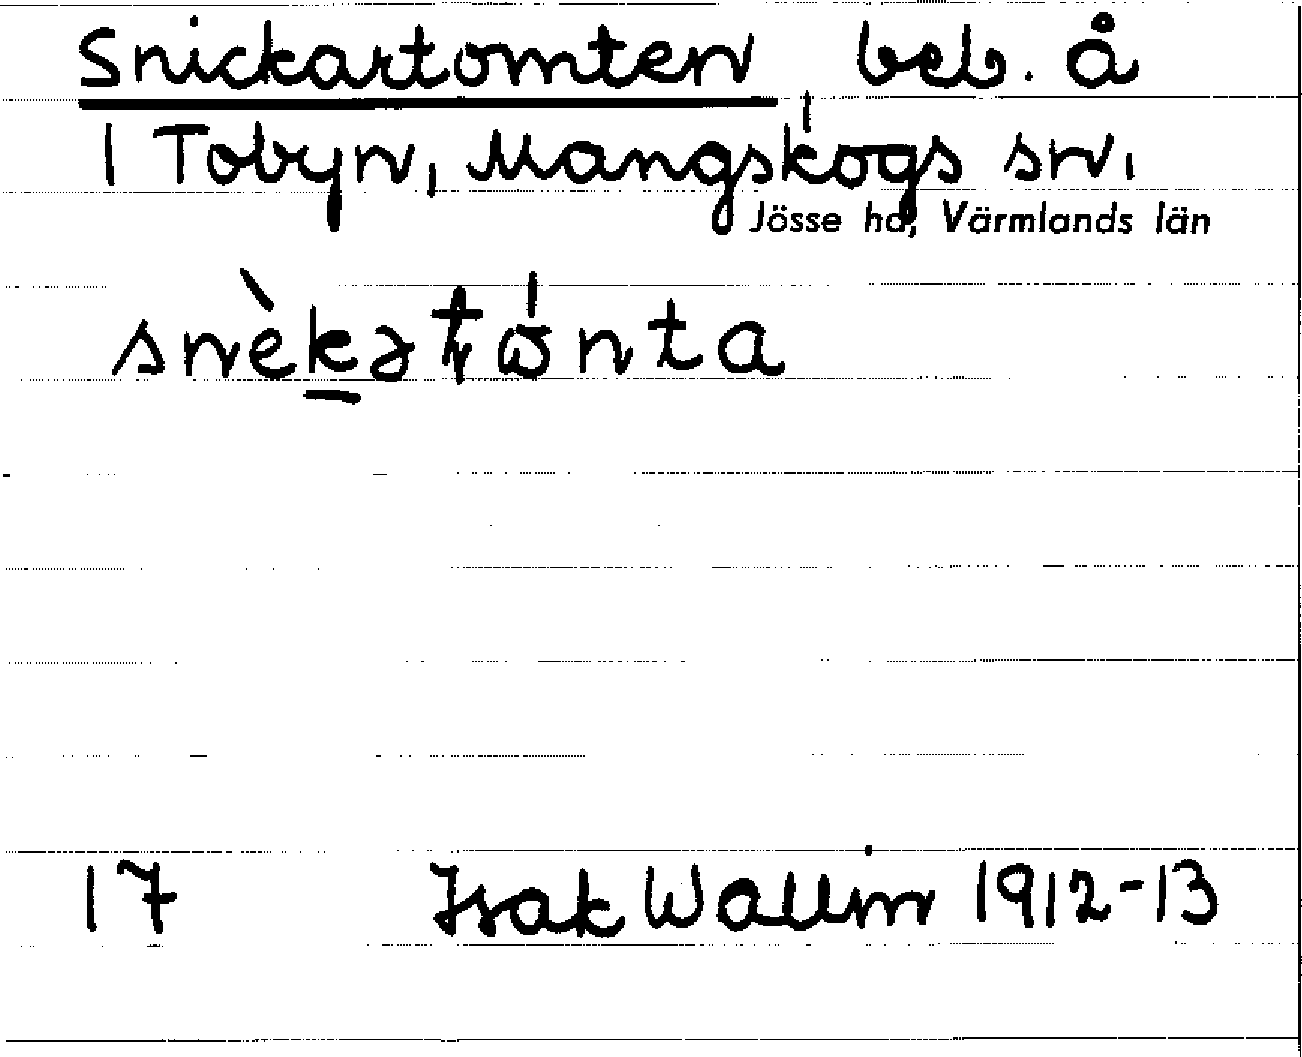 Snickartomten, beb. å
1 Tobyn, Mangskogs sn.
Jösse hd, Värmlands län
snèkatónta
17 Isak Wallin 1912-13